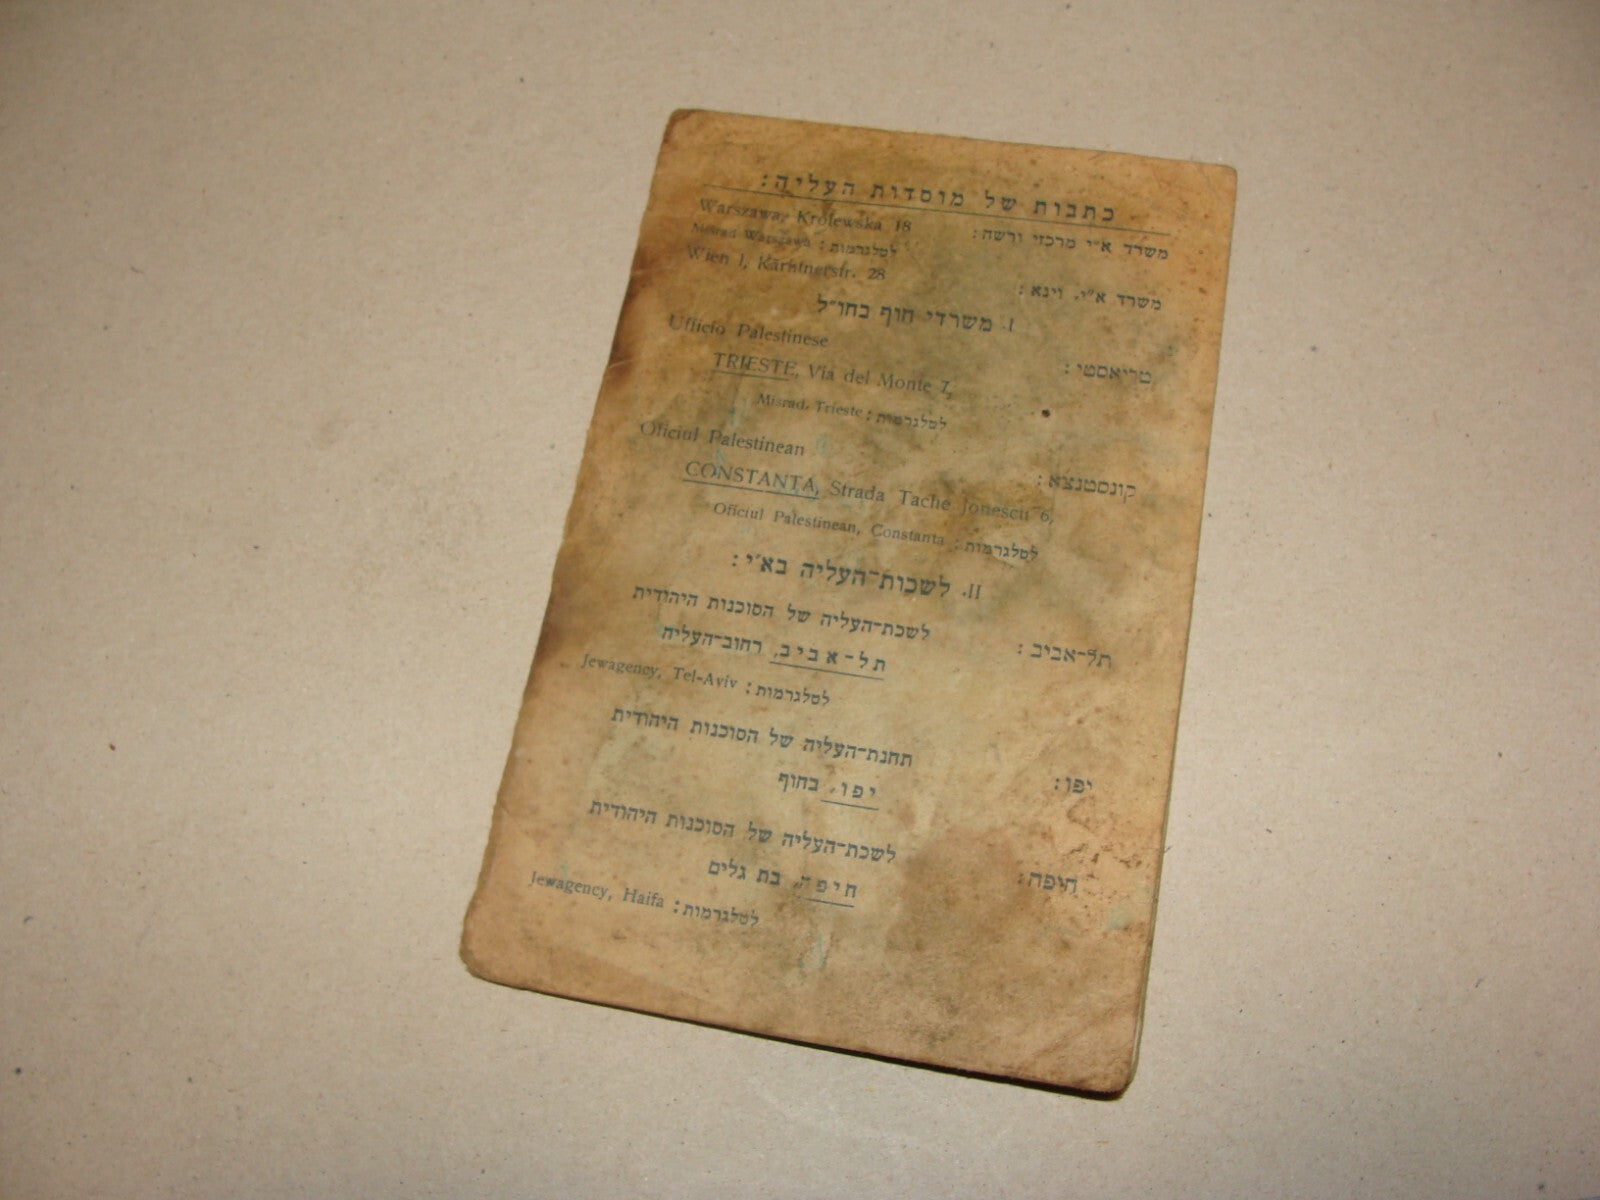 כתבות של מוסדות העליה:
משרד א"י מרכזי ורשה: Warszawa, Królewska 18
לטלגרמות: Misrad Warszawa
משרד א"י, וינא: Wien I, Kärntnerstr. 28
I. משרדי חוף בחו"ל
טריאסטי: Ufficio Palestinese
TRIESTE, Via del Monte 7,
לטלגרמות: Misrad, Trieste
קונסטנצא: Oficiul Palestinean
CONSTANTA, Strada Tache Jonescu 6,
לטלגרמות: Oficiul Palestinean, Constanta
II. לשכות-העליה בא"י:
תל-אביב: לשכת-העליה של הסוכנות היהודית
תל-אביב, רחוב-העליה
לטלגרמות: Jewagency, Tel-Aviv
יפו: תחנת-העליה של הסוכנות היהודית
יפו, בחוף
חיפה: לשכת-העליה של הסוכנות היהודית
חיפה, בת גלים
לטלגרמות: Jewagency, Haifa